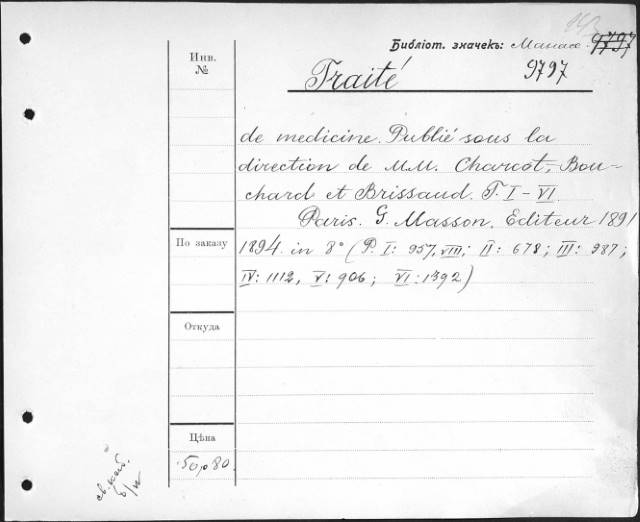 Библіот. значекъ: Манасс. 9797
9797
Инв.
№
Traité
de medicine. Publié sous la
direction de M.M. Charcot, Bou-
chard et Brissaud. T. I - VI
Paris. G. Masson, Editeur 1891
По заказу
1894. in 8° (P. I: 957, VIII; II: 678; III: 987;
IV: 1112, V: 906; VI: 1392)
Откуда
Цѣна
50,80.